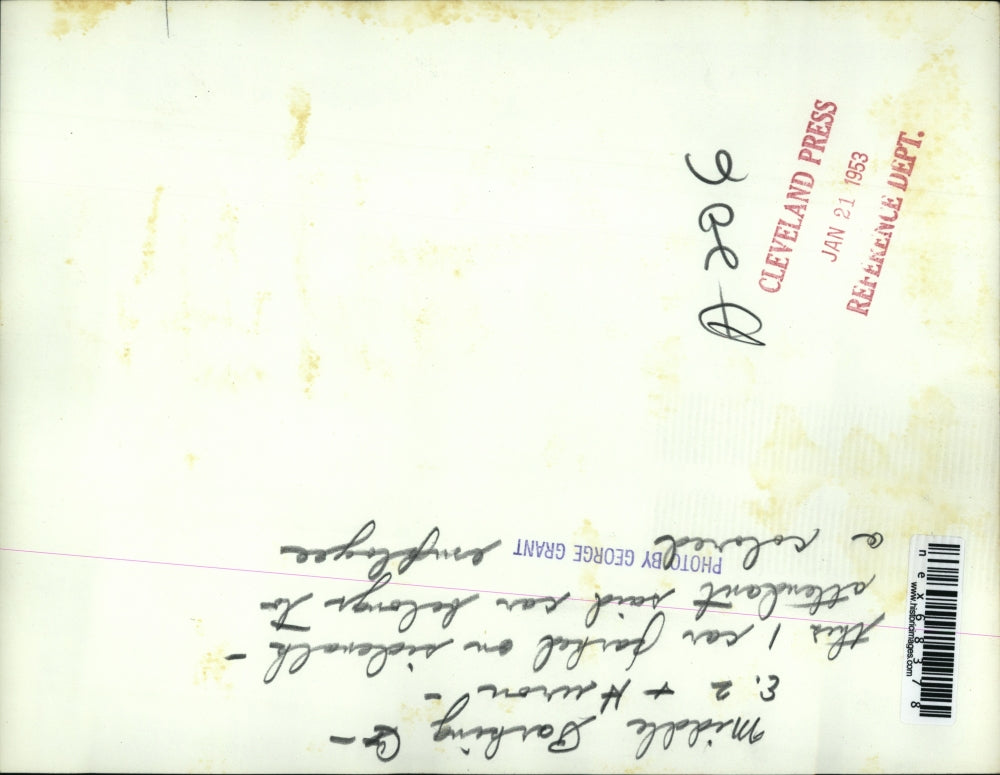 Middle Parking Co-
E. 2 + Huron -
this 1 car parked on sidewalk -
attendant said car belongs to
a colored employee
PHOTO BY GEORGE GRANT
CLEVELAND PRESS
JAN 21 1953
REFERENCE DEPT.
www.historicimages.com
nex68378